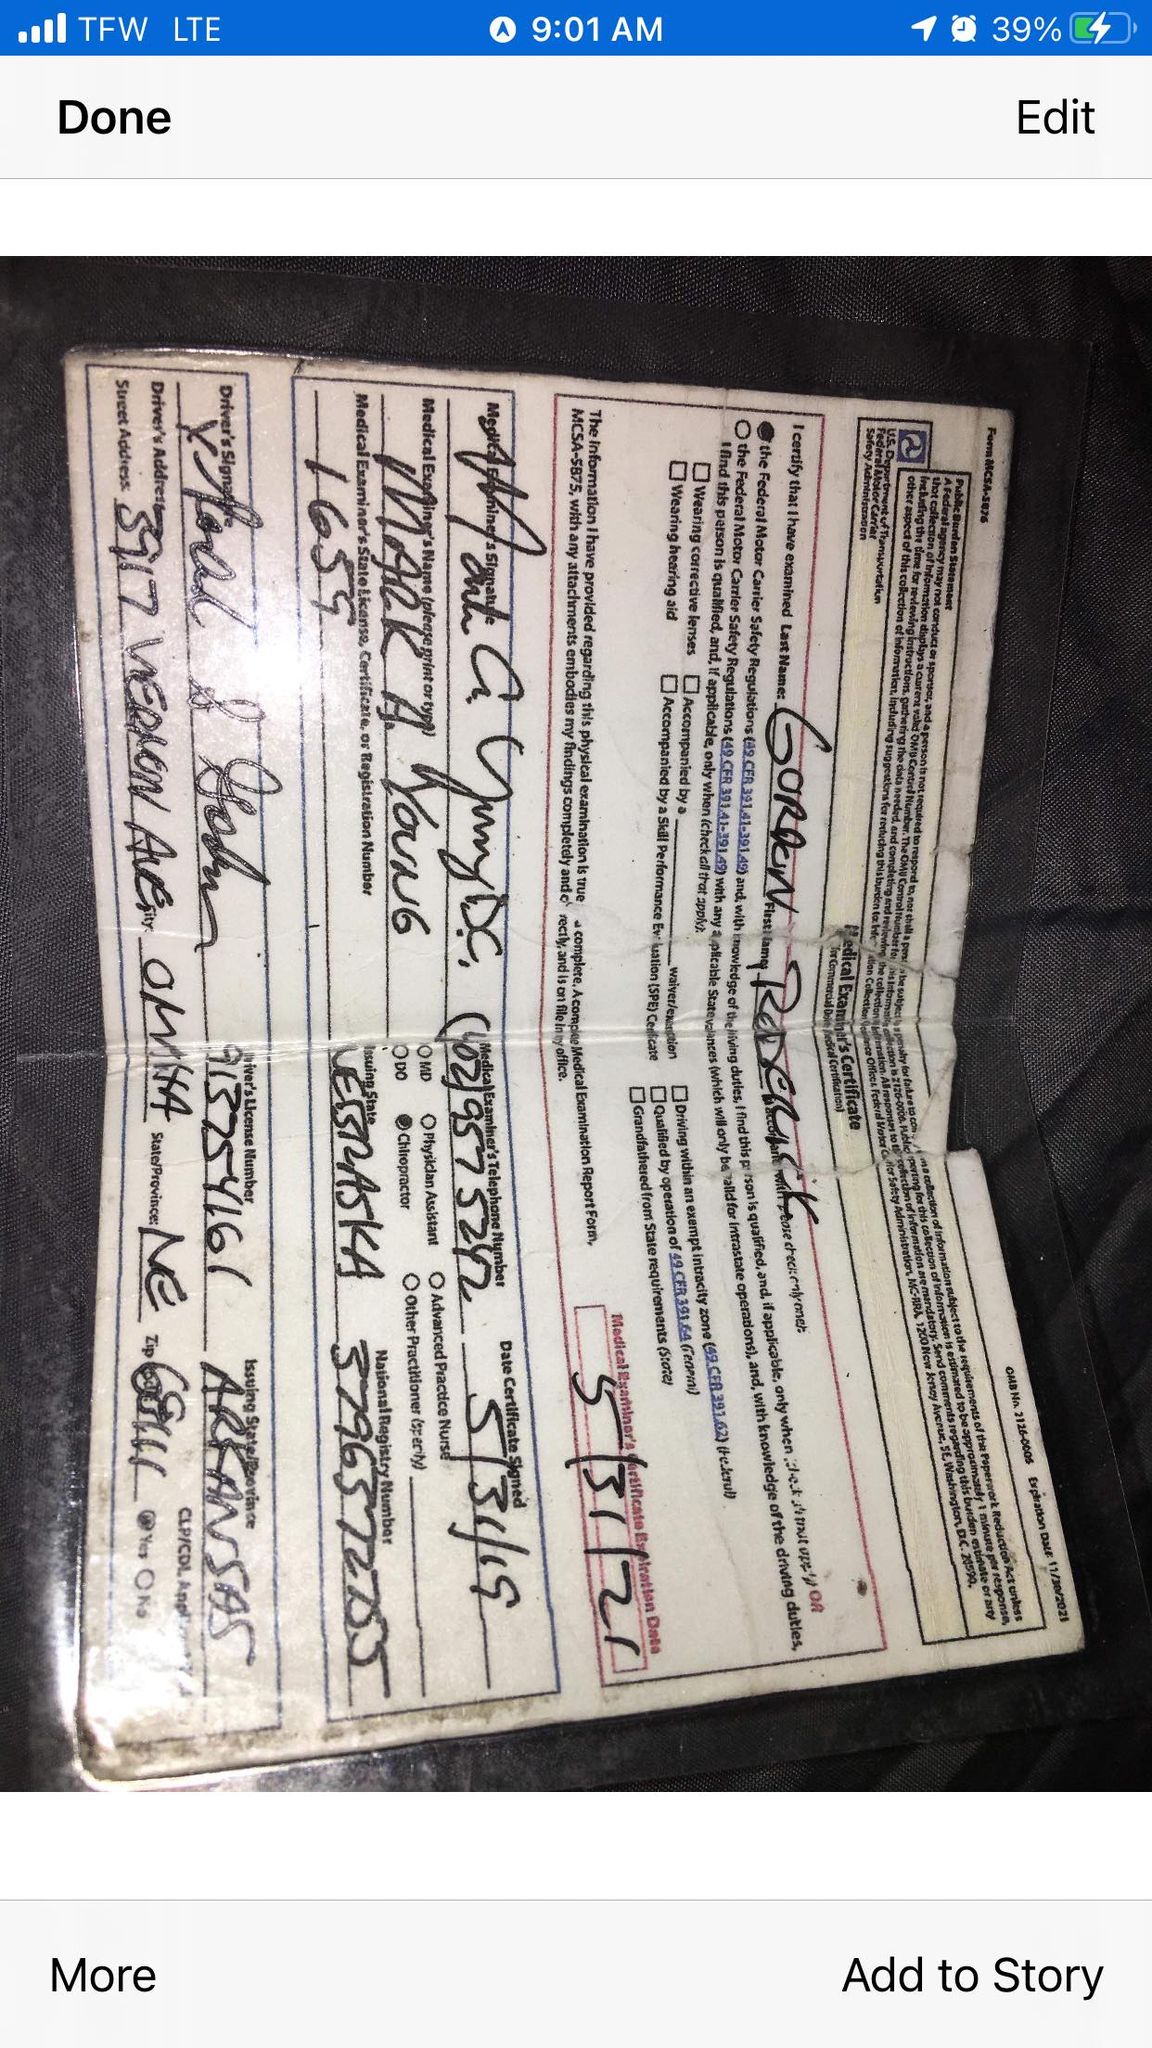 TFW LTE 9:01 AM 39%
Done Edit
Form MCSA-5876 OMB No. 2126-0006 Expiration Date: 11/30/2021
Public Burden Statement
A Federal agency may not conduct or sponsor, and a person is not required to respond to, nor shall a person be subject to a penalty for failure to comply with a collection of information subject to the requirements of the Paperwork Reduction Act unless
that collection of information displays a current valid OMB Control Number. The OMB Control Number for this information collection is 2126-0006. Public reporting for this collection of information is estimated to be approximately 1 minute per response,
including the time for reviewing instructions, gathering the data needed, and completing and reviewing the collection of information. All responses to this collection of information are mandatory. Send comments regarding this burden estimate or any
other aspect of this collection of information, including suggestions for reducing this burden to: Information Collection Clearance Officer, Federal Motor Carrier Safety Administration, MC-RRA, 1200 New Jersey Avenue, SE, Washington, D.C. 20590.
U.S. Department of Transportation
Federal Motor Carrier
Safety Administration
Medical Examiner's Certificate
(for Commercial Driver Medical Certification)
I certify that I have examined Last Name: GORDEN First Name: RODERICK in accordance with (please check only one):
the Federal Motor Carrier Safety Regulations (49 CFR 391.41-391.49) and, with knowledge of the driving duties, I find this person is qualified, and, if applicable, only when (check all that apply) OR
the Federal Motor Carrier Safety Regulations (49 CFR 391.41-391.49) with any applicable State variances (which will only be valid for intrastate operations), and, with knowledge of the driving duties,
I find this person is qualified, and, if applicable, only when (check all that apply):
Wearing corrective lenses Accompanied by a waiver/exemption Driving within an exempt intracity zone (49 CFR 391.62) (Federal)
Wearing hearing aid Accompanied by a Skill Performance Evaluation (SPE) Certificate Qualified by operation of 49 CFR 391.64 (Federal)
Grandfathered from State requirements (State)
The information I have provided regarding this physical examination is true and complete. A complete Medical Examination Report Form,
MCSA-5875, with any attachments embodies my findings completely and correctly, and is on file in my office.
Medical Examiner's Certificate Expiration Date
5/31/21
Medical Examiner's Signature Medical Examiner's Telephone Number Date Certificate Signed
Mark A. Young D.C. (402)957 5242 5/31/19
Medical Examiner's Name (please print or type) MD Physician Assistant Advanced Practice Nurse
MARK A YOUNG DO Chiropractor Other Practitioner (specify)
Medical Examiner's State License, Certificate, or Registration Number Issuing State National Registry Number
1659 NEBRASKA 5796572755
Driver's Signature Driver's License Number Issuing State/Province
X 913754161 ARKANSAS
Driver's Address CLP/CDL
Street Address: 5917 VERNON AVE City: OMAHA State/Province: NE Zip Yes No
More Add to Story